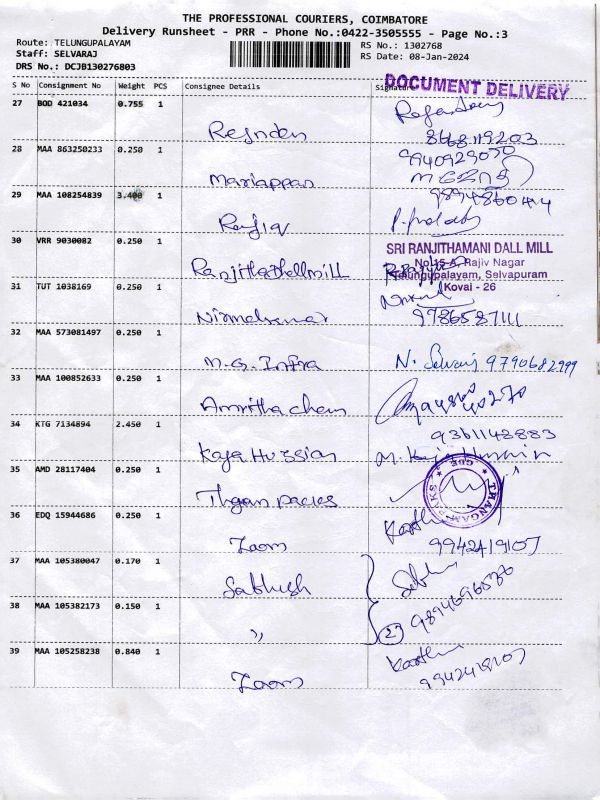 THE PROFESSIONAL COURIERS, COIMBATORE
Delivery Runsheet - PRR - Phone No.:0422-3505555 - Page No.:3
Route: TELUNGUPALAYAM
Staff: SELVARAJ
DRS No.: DCJB130276803
RS No.: 1302768
RS Date: 08-Jan-2024
S No Consignment No Weight PCS Consignee Details Signature
DOCUMENT DELIVERY
27 BOD 421034 0.755 1
8668119203
28 MAA 863250233 0.250 1
Mariappan
29 MAA 108254839 3.400 1
Rafiq
30 VRR 9030082 0.250 1
SRI RANJITHAMANI DALL MILL
No.15-A, Rajiv Nagar
Telungupalayam, Selvapuram
Kovai - 26
31 TUT 1038169 0.250 1
Nirmalkumar 9786587111
32 MAA 573081497 0.250 1
M.G. Infra N. Selvaraj 9790682999
33 MAA 100852633 0.250 1
Amritha chem
34 KTG 7134894 2.450 1
9361142883
Kaja Hussian
35 AMD 28117404 0.250 1
36 EDQ 15944686 0.250 1
Zoom 9942419107
37 MAA 105380047 0.170 1
Sabhish
38 MAA 105382173 0.150 1
〃 2
39 MAA 105258238 0.840 1
Zoom 9942419107